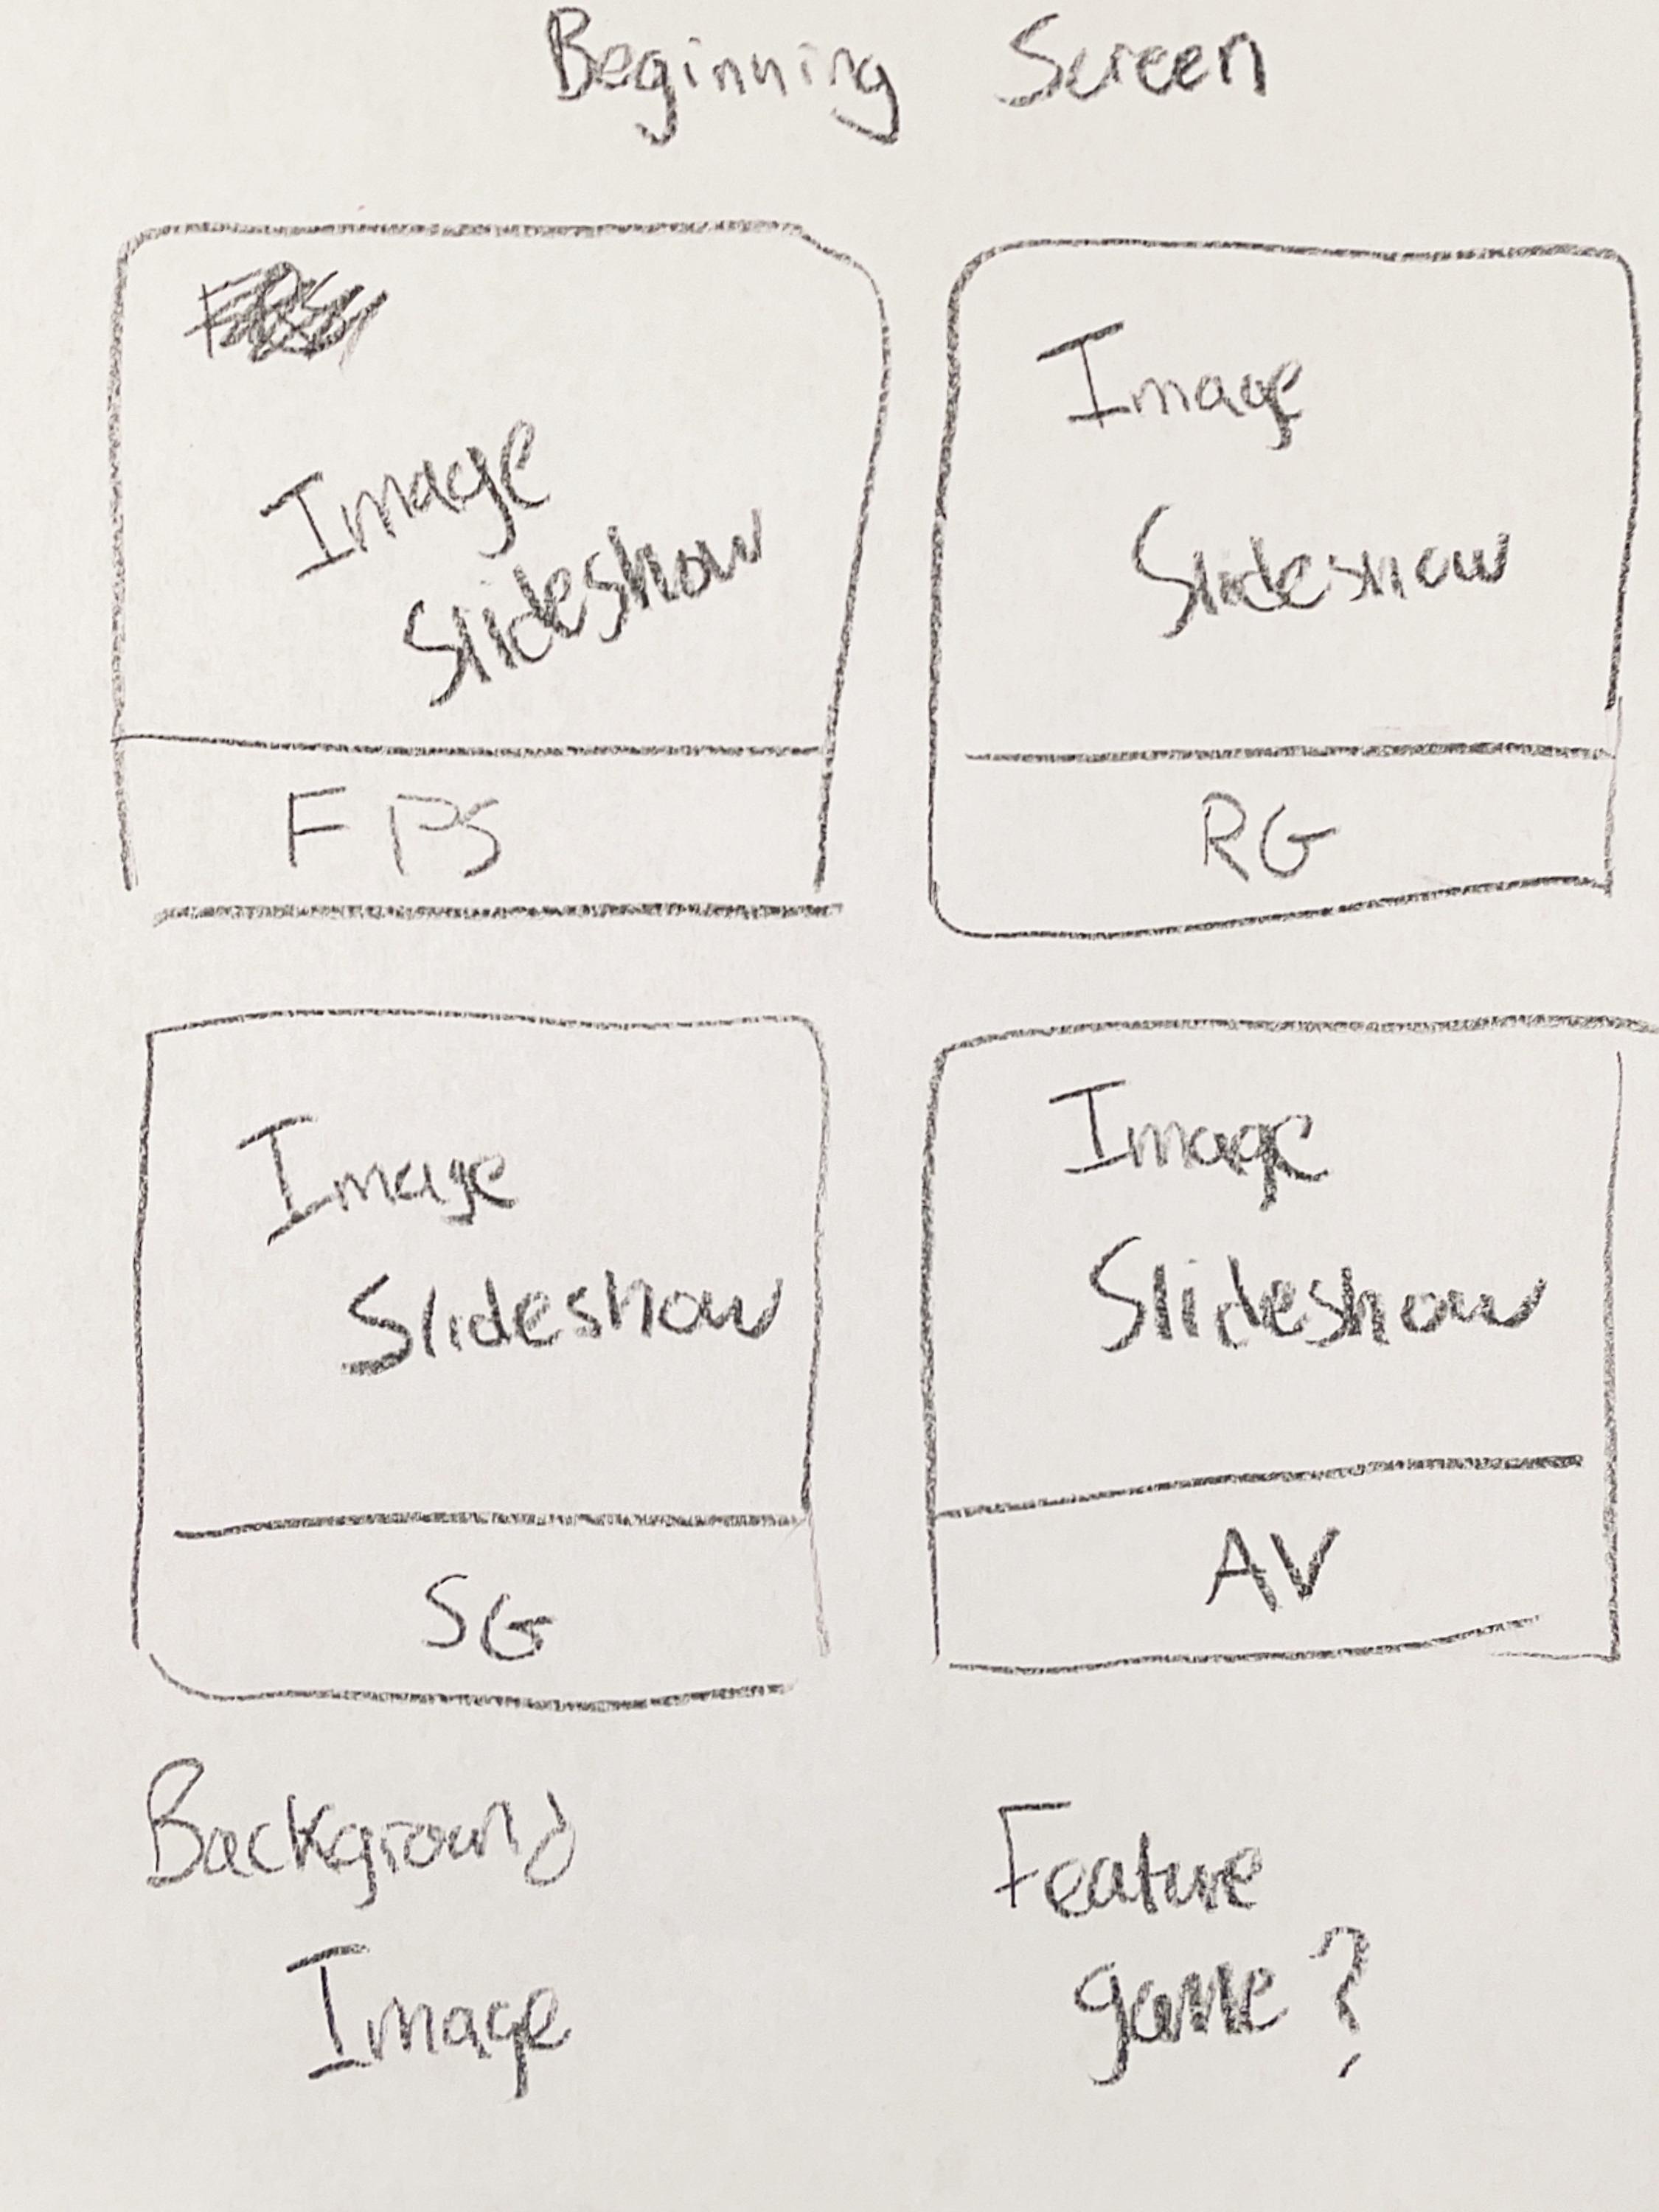 Beginning Screen
Image
Slideshow
FPS
Image
Slideshow
RG
Image
Slideshow
SG
Image
Slideshow
AV
Background
Image
Feature
game?